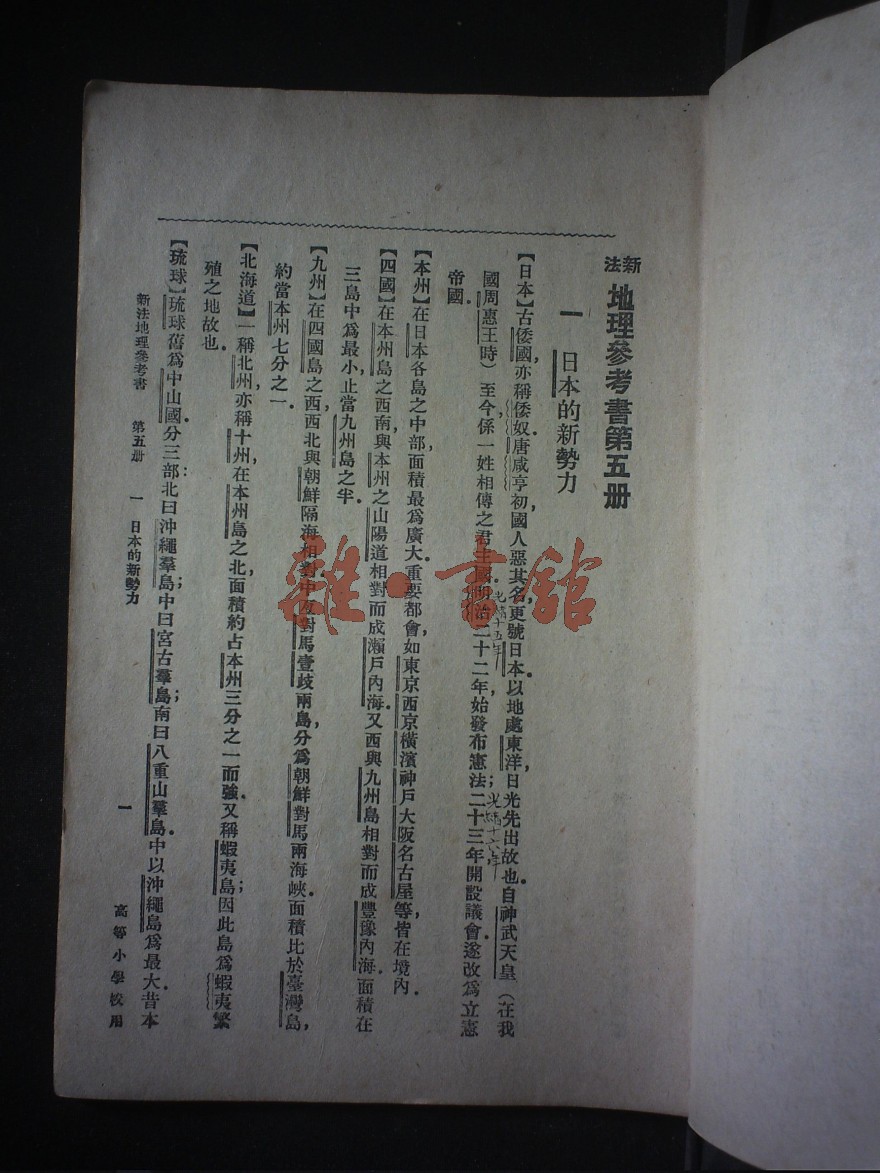 新法 地理參考書第五册
一 日本的新勢力
【日本】古倭國，亦稱倭奴。唐咸亨初，國人惡其名，更號日本。以地處東洋，日光先出故也。自神武天皇（在我
國周惠王時）至今，係一姓相傳之君主國。明治二十二年，始發布憲法；二十三年，開設議會。遂改爲立憲
光緒十五年
光緒十六年
帝國。
【本州】在日本各島之中部，面積最爲廣大。重要都會，如東京西京橫濱神戶大阪名古屋等，皆在境內。
【四國】在本州島之西南，與本州之山陽道相對而成瀨戶內海。又西與九州島相對而成豐豫內海。面積在
三島中爲最小，止當九州島之半。
【九州】在四國島之西，西北與朝鮮隔海相對，中友對馬壹歧兩島，分爲朝鮮對馬兩海峽。面積比於臺灣島，
約當本州七分之一。
【北海道】一稱北州，亦稱十州，在本州島之北，面積約占本州三分之一而強。又稱蝦夷島；因此島爲蝦夷繁
殖之地故也。
【琉球】琉球舊爲中山國。分三部：北曰沖繩羣島；中曰宮古羣島；南曰八重山羣島。中以沖繩島爲最大。昔本
新法地理參考書 第五册 一 日本的新勢力 一 高等小學校用
雜·書館